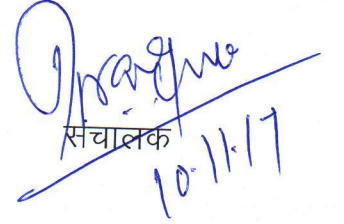 संचालक
10.11.17